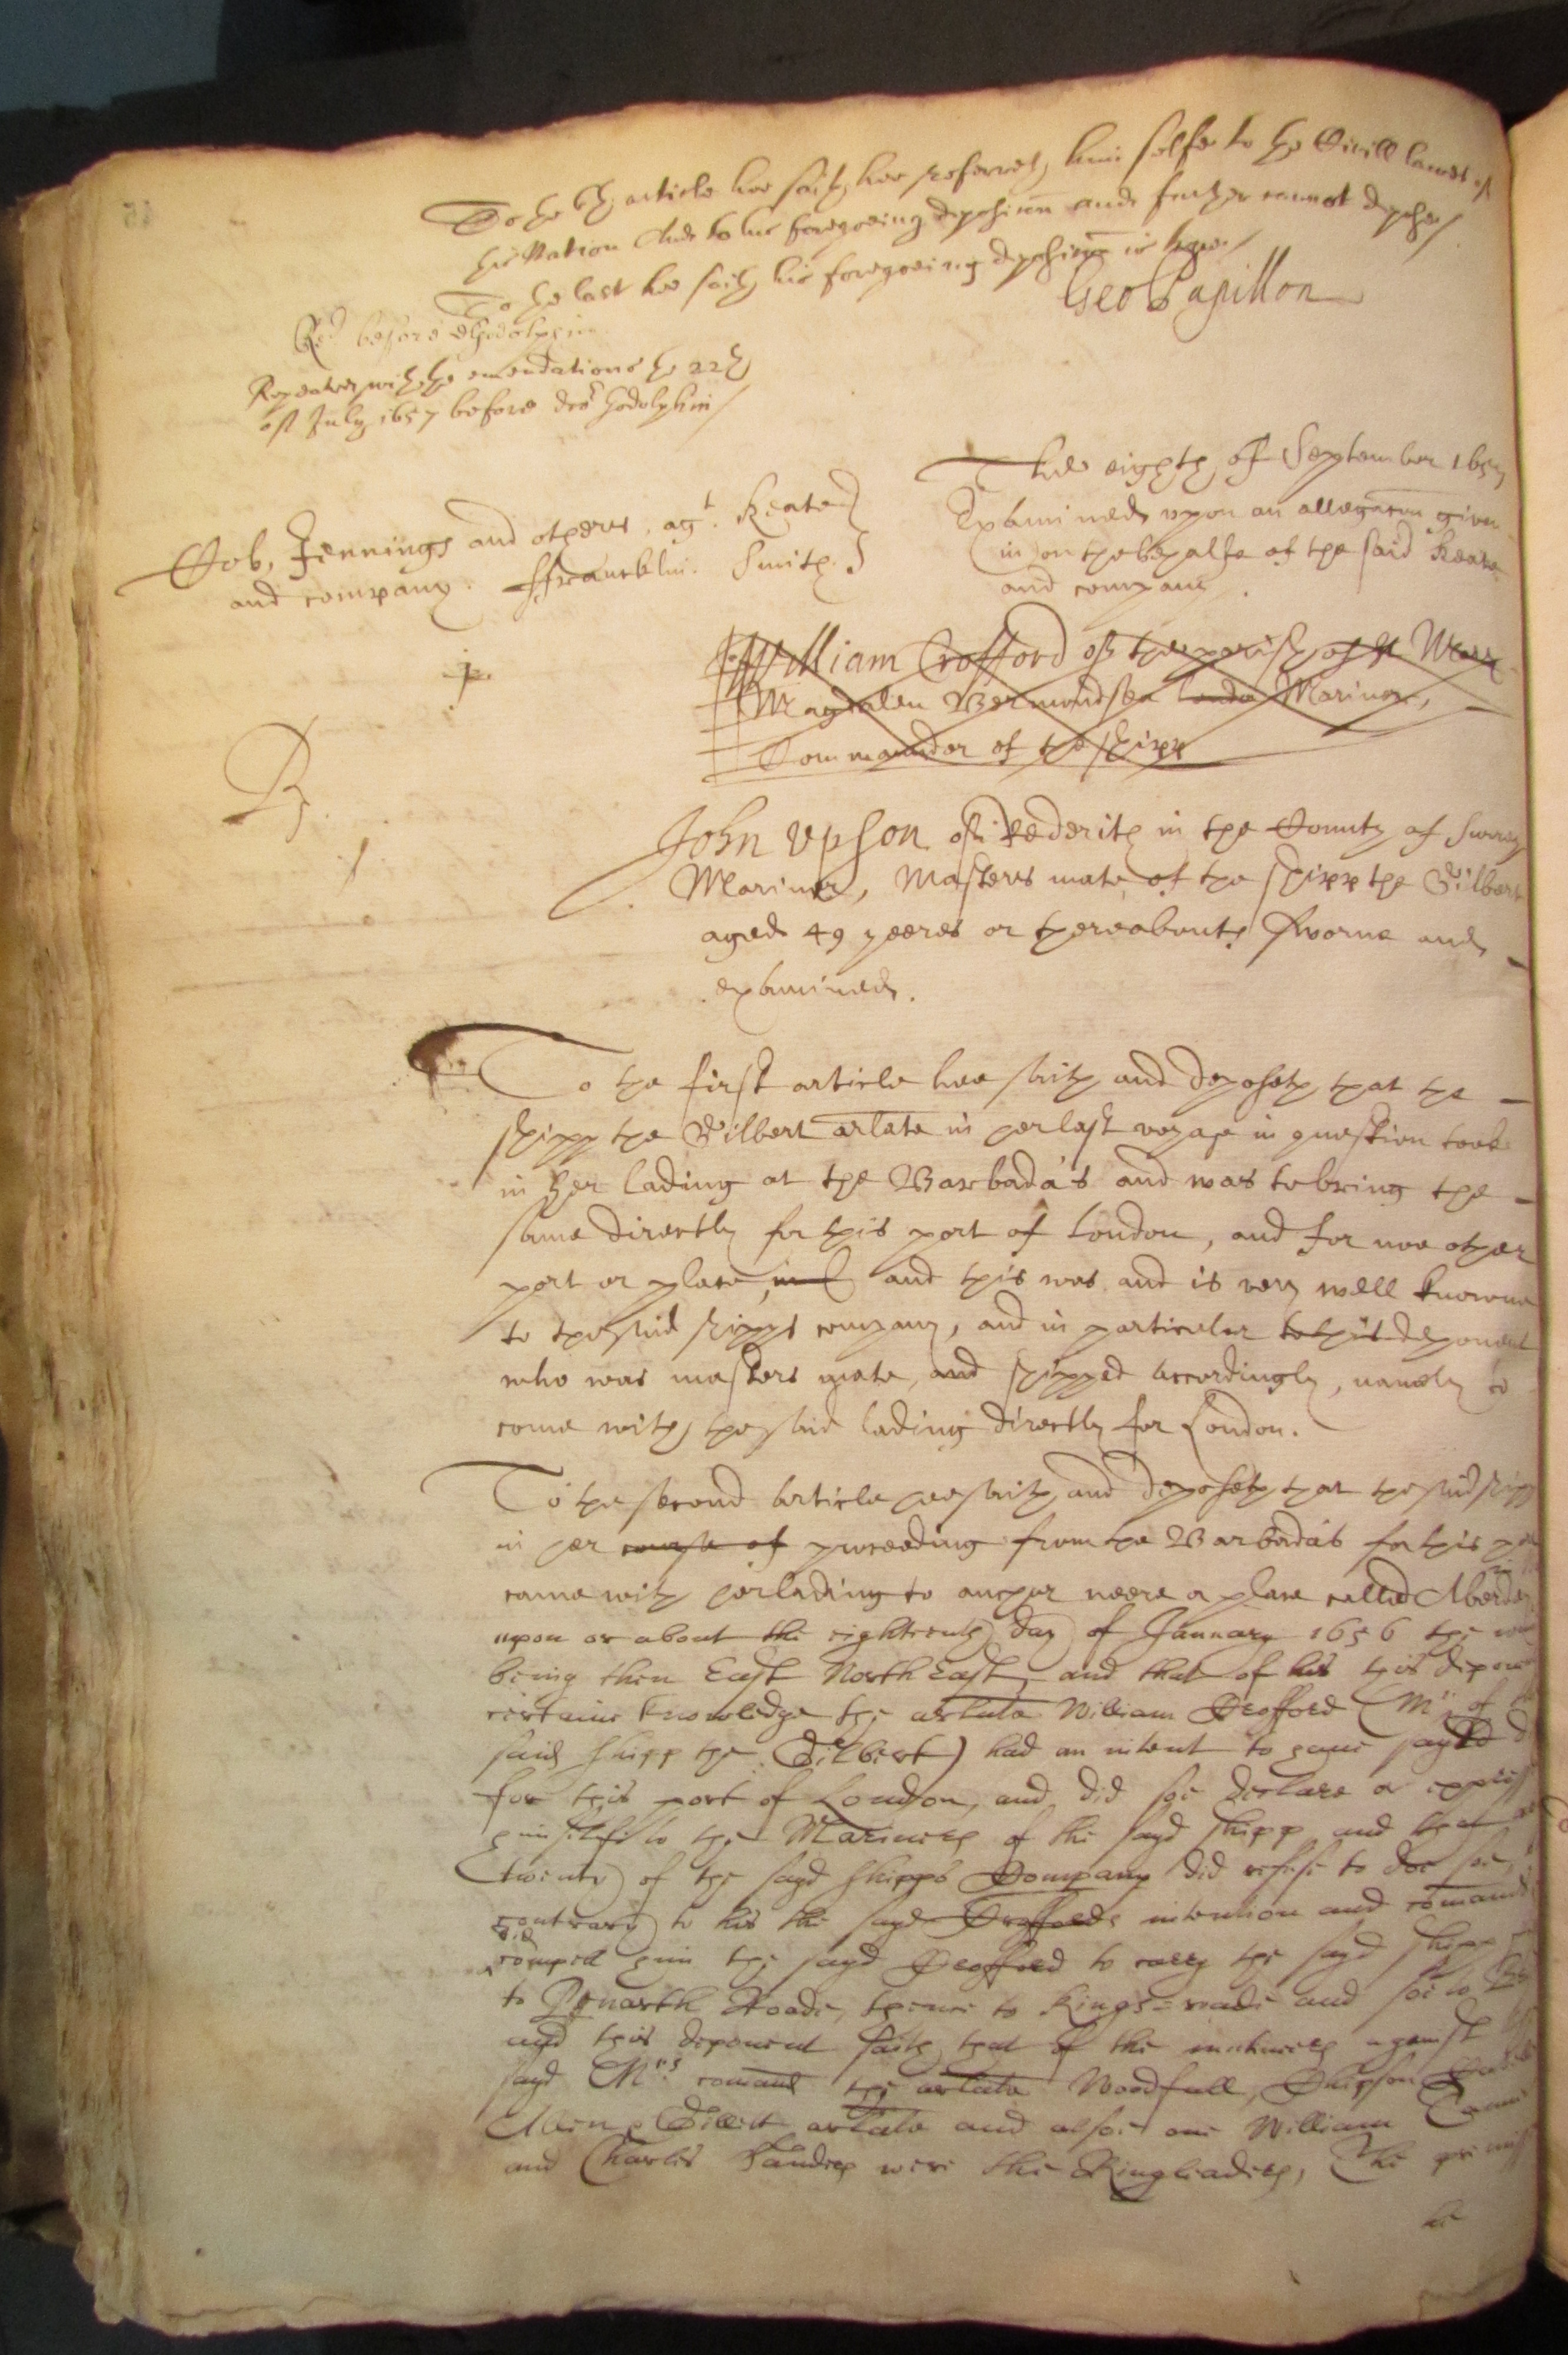 To the 6th article hee saith hee referreth him selfe to the Civill lawes of
his Nation And to his foregoeing deposicon and further cannot depose/
To the last hee saith his foregoeing deposicon is true/
Geo Papillon
Repeated with the emendations the 22th
of July 1657 before dor Godolphin/
The eighth of September 1657
Examined upon an allegacon given
in on the behalfe of the said Keate
and company.
Job, Jennings and others, agt. Keate
and company. ffrancklin. Smith.
William Crofford of the parish of St Mary
Magdalen Bermondsea Mariner,
Commander of the shipp
John Upson of Rederith in the County of Surrey
Mariner, Masters mate of the shipp the Gilbert
aged 49 yeeres or thereabouts sworne and
examined.
To the first article hee saith and deposeth that the
shipp the Gilbert arlate in her last voyage in question tooke
in her lading at the Barbada's and was to bring the
same directly for this port of London, and for noe other
port or place, and this was and is very well knowne
to the said shipps company, and in particular to this deponent
who was masters mate, and shipped accordingly, namely to
come with the said lading directly for London.
To the second article hee saith and deposeth that the said shipp
in her course of proceeding from the Barbada's for this
came with her lading to anchor neere a place called
upon or about the eighteenth day of January 1656 the
being then East North East, and that of his this
certaine knowledge the arlate William Crofford (Mr of
said shipp the Gilbert) had an intent to have sayled
for this port of London, and did soe declare or
himselfe to the Mariners of the sayd shipp and
twenty of the sayd shipps Company did refuse to doe soe,
contrary to his the sayd Croffords intention and
did
compell him the sayd Crofford to carry the sayd shipp
to Penarth Roade, thence to Kings=roade and soe to
and this deponent saith that of the mutineers against
sayd Mrs comand the arlate Woodfall, Shipson
Allin, Gillett arlate and alsoe one William
and Charles Sanders were the Ringleaders, The
he